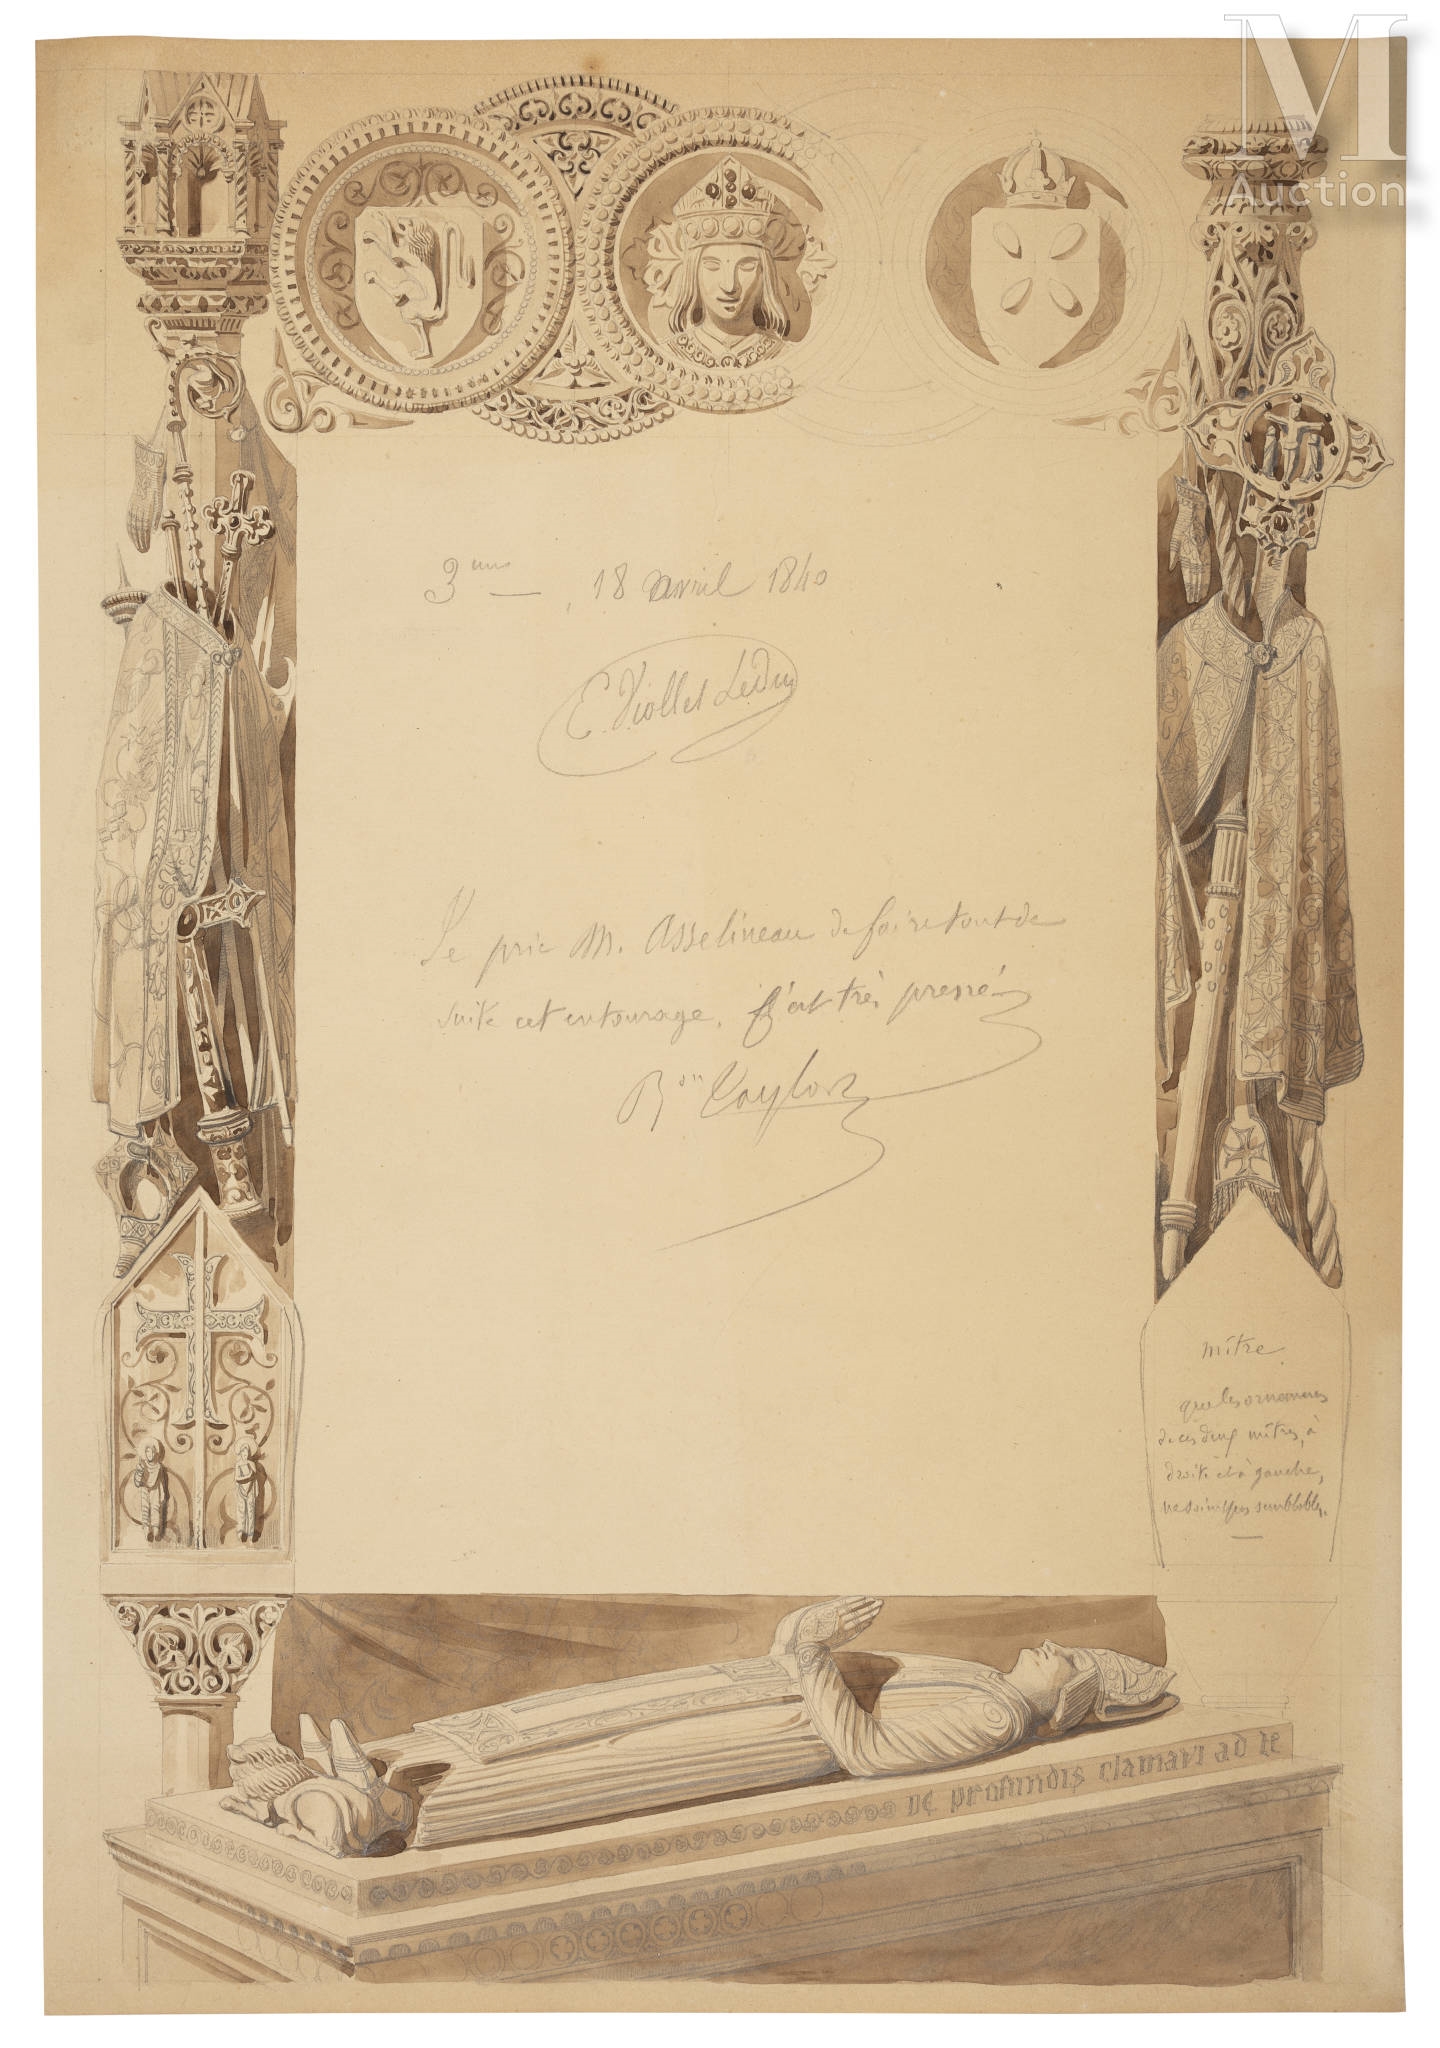 M
Auction
3 , 18 avril 1840
E. Viollet Leduc
Je prie M. Asselineau de faire tout de
suite cet entourage. C'est très pressé
Bon Taylor
mître.
que les ornemens
de ces deux mîtres, à
droite et à gauche,
ne soient pas semblables.
DE profundis clamavi ad te